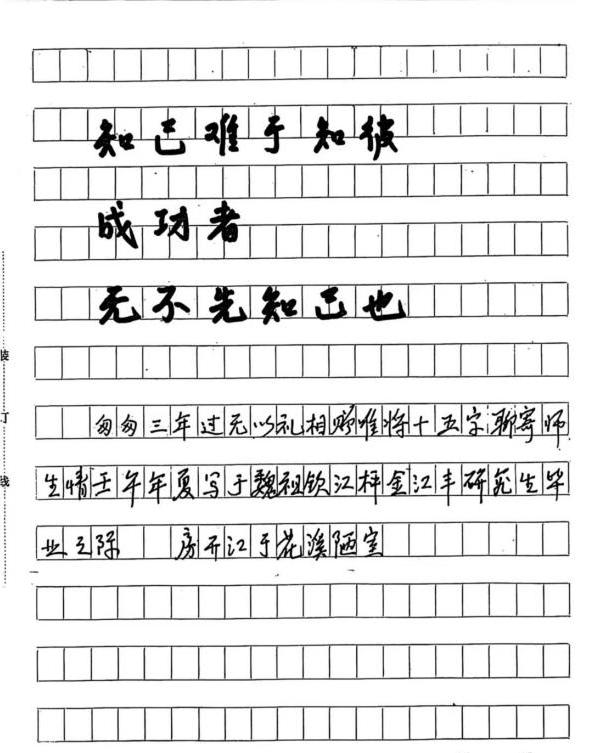 知己难于知彼
成功者
无不先知己也
匆匆三年过无以礼相赠唯将十五字聊寄师
生情壬午年夏写于魏祖钦江枰金江丰研究生毕
业之际 房开江于花溪陋室
装
订
线